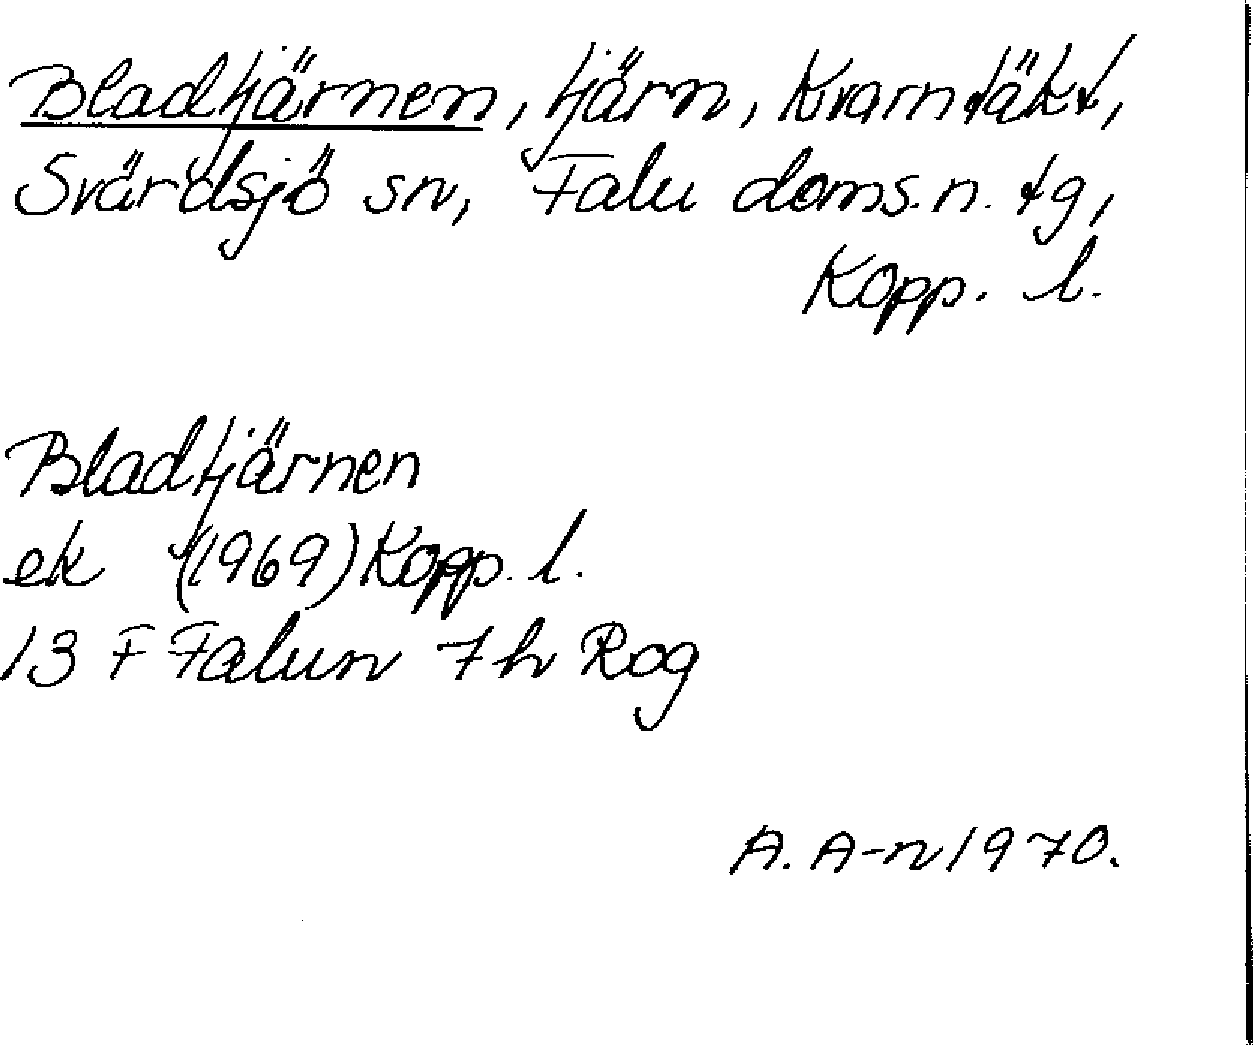 Bladtjärnen, tjärn, Kvarntäkt,
Svärdsjö sn, Falu doms.n. tg,
Kopp. l.
Bladtjärnen
ek (1969) Kopp. l.
13 F Falun 7 h Rog
A. A-n 1970.